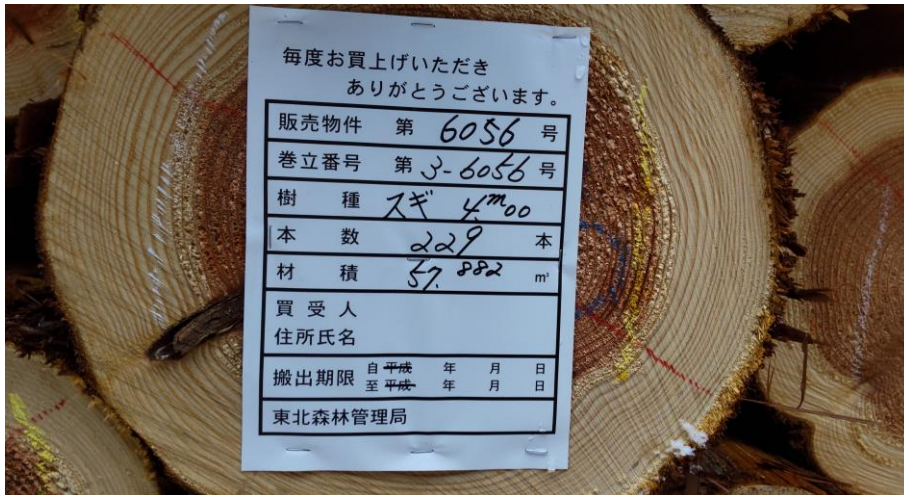 毎度お買上げいただき
ありがとうございます。
販売物件 第 6056 号
巻立番号 第 3-6056 号
樹種 スギ 4.m00
本数 229 本
材積 57.882 m³
買受人
住所氏名
搬出期限 自 平成 年 月 日
至 平成 年 月 日
東北森林管理局